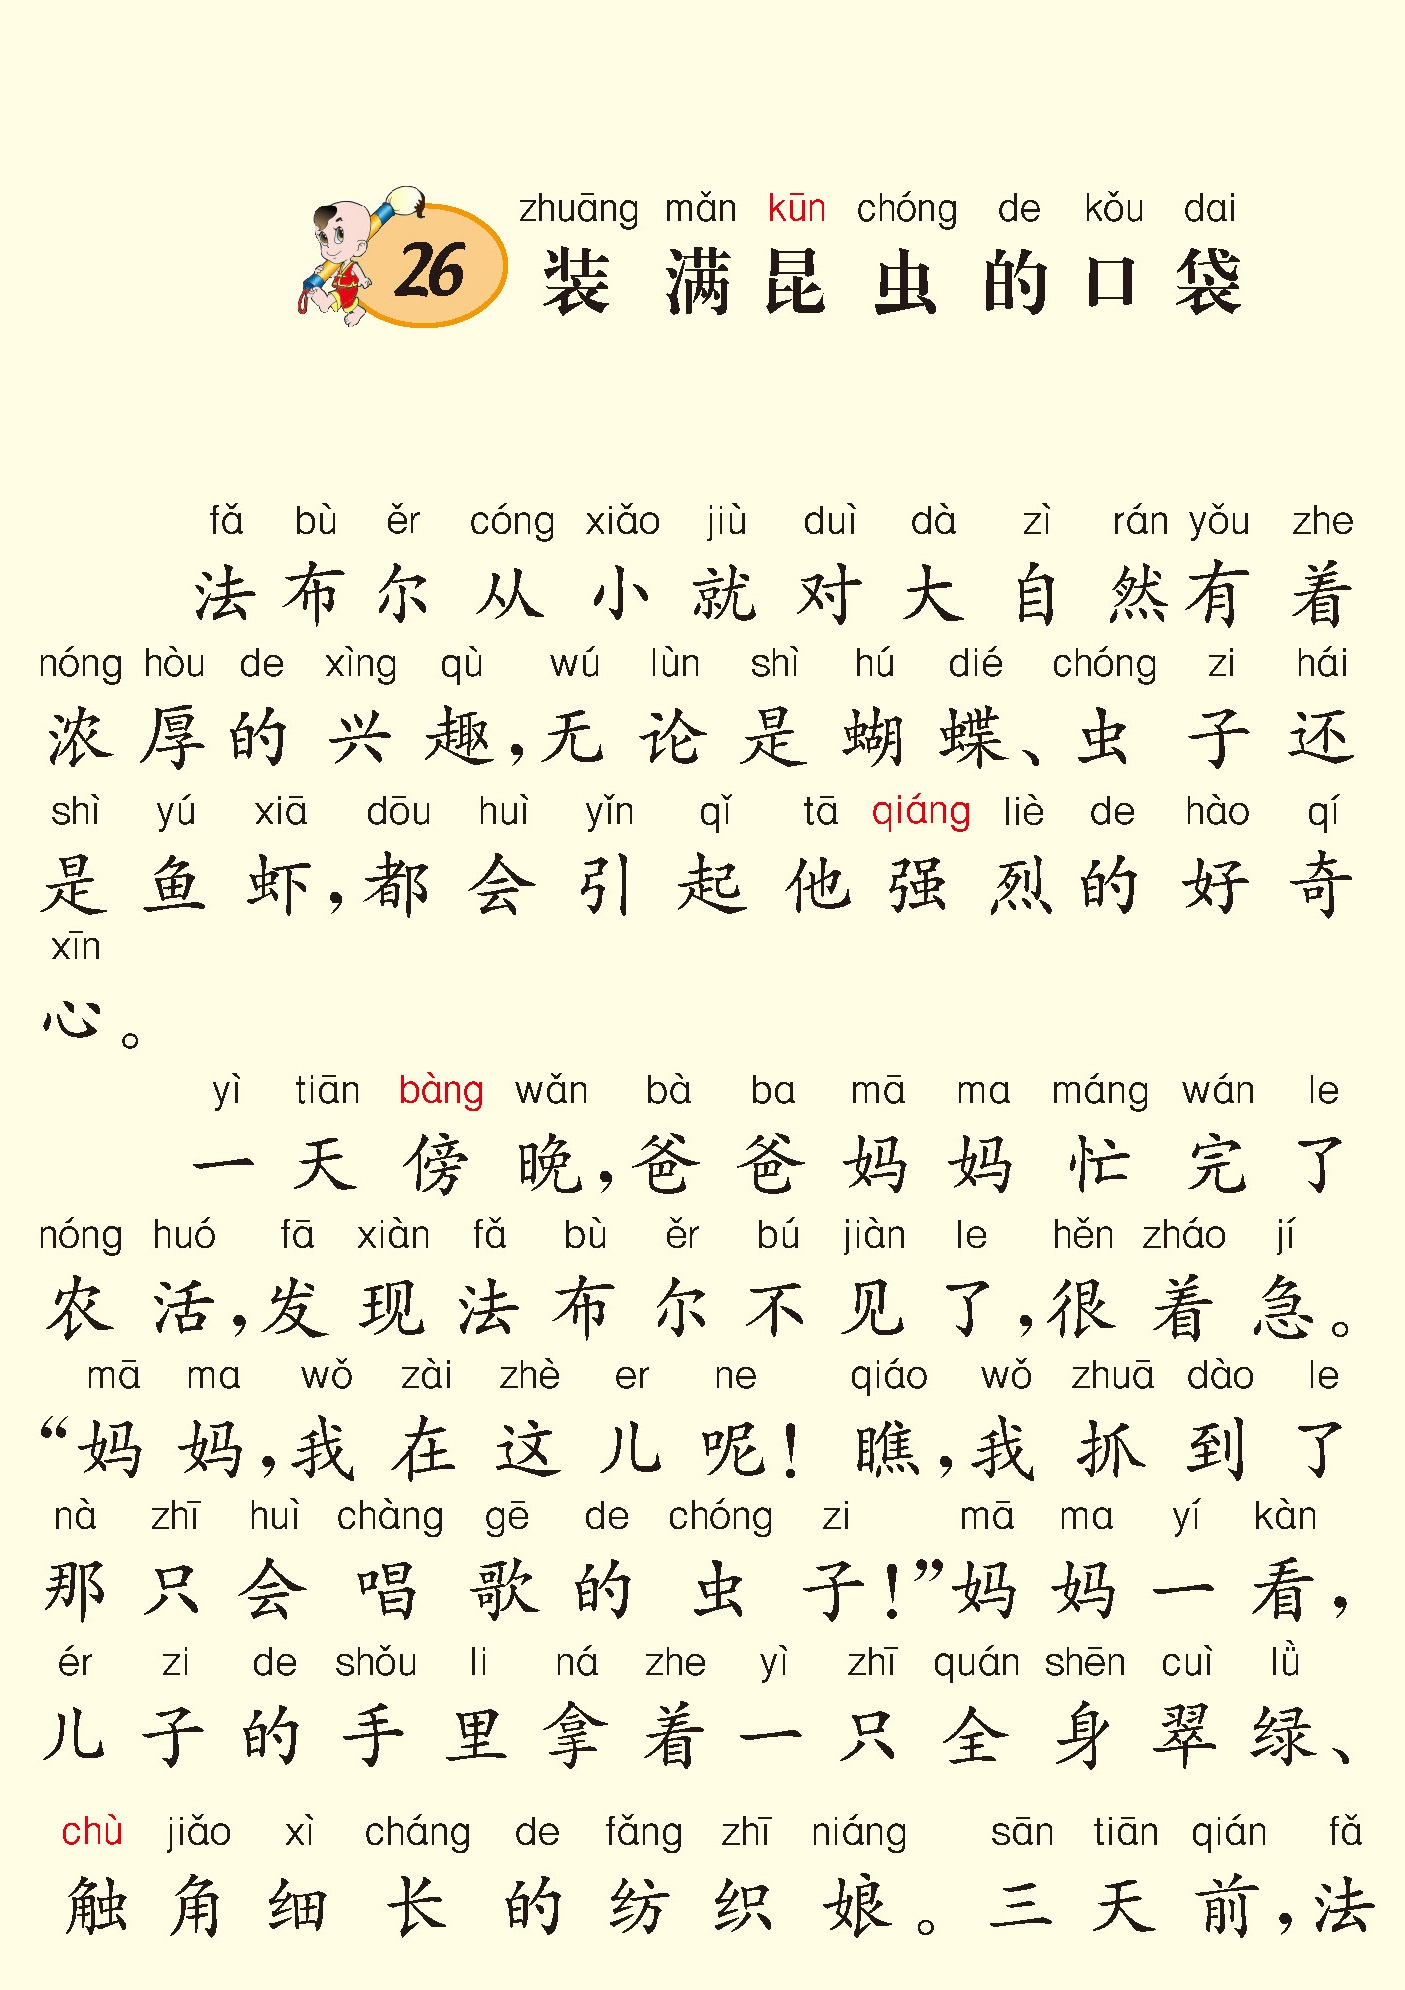 zhuāng mǎn kūn chóng de kǒu dai
26 装满昆虫的口袋
fǎ bù ěr cóng xiǎo jiù duì dà zì rán yǒu zhe
法布尔从小就对大自然有着
nóng hòu de xìng qù wú lùn shì hú dié chóng zi hái
浓厚的兴趣,无论是蝴蝶、虫子还
shì yú xiā dōu huì yǐn qǐ tā qiáng liè de hào qí
是鱼虾,都会引起他强烈的好奇
xīn
心。
yì tiān bàng wǎn bà ba mā ma máng wán le
一天傍晚,爸爸妈妈忙完了
nóng huó fā xiàn fǎ bù ěr bú jiàn le hěn zháo jí
农活,发现法布尔不见了,很着急。
mā ma wǒ zài zhè er ne qiáo wǒ zhuā dào le
“妈妈,我在这儿呢!瞧,我抓到了
nà zhī huì chàng gē de chóng zi mā ma yí kàn
那只会唱歌的虫子!”妈妈一看,
ér zi de shǒu li ná zhe yì zhī quán shēn cuì lǜ
儿子的手里拿着一只全身翠绿、
chù jiǎo xì cháng de fǎng zhī niáng sān tiān qián fǎ
触角细长的纺织娘。三天前,法